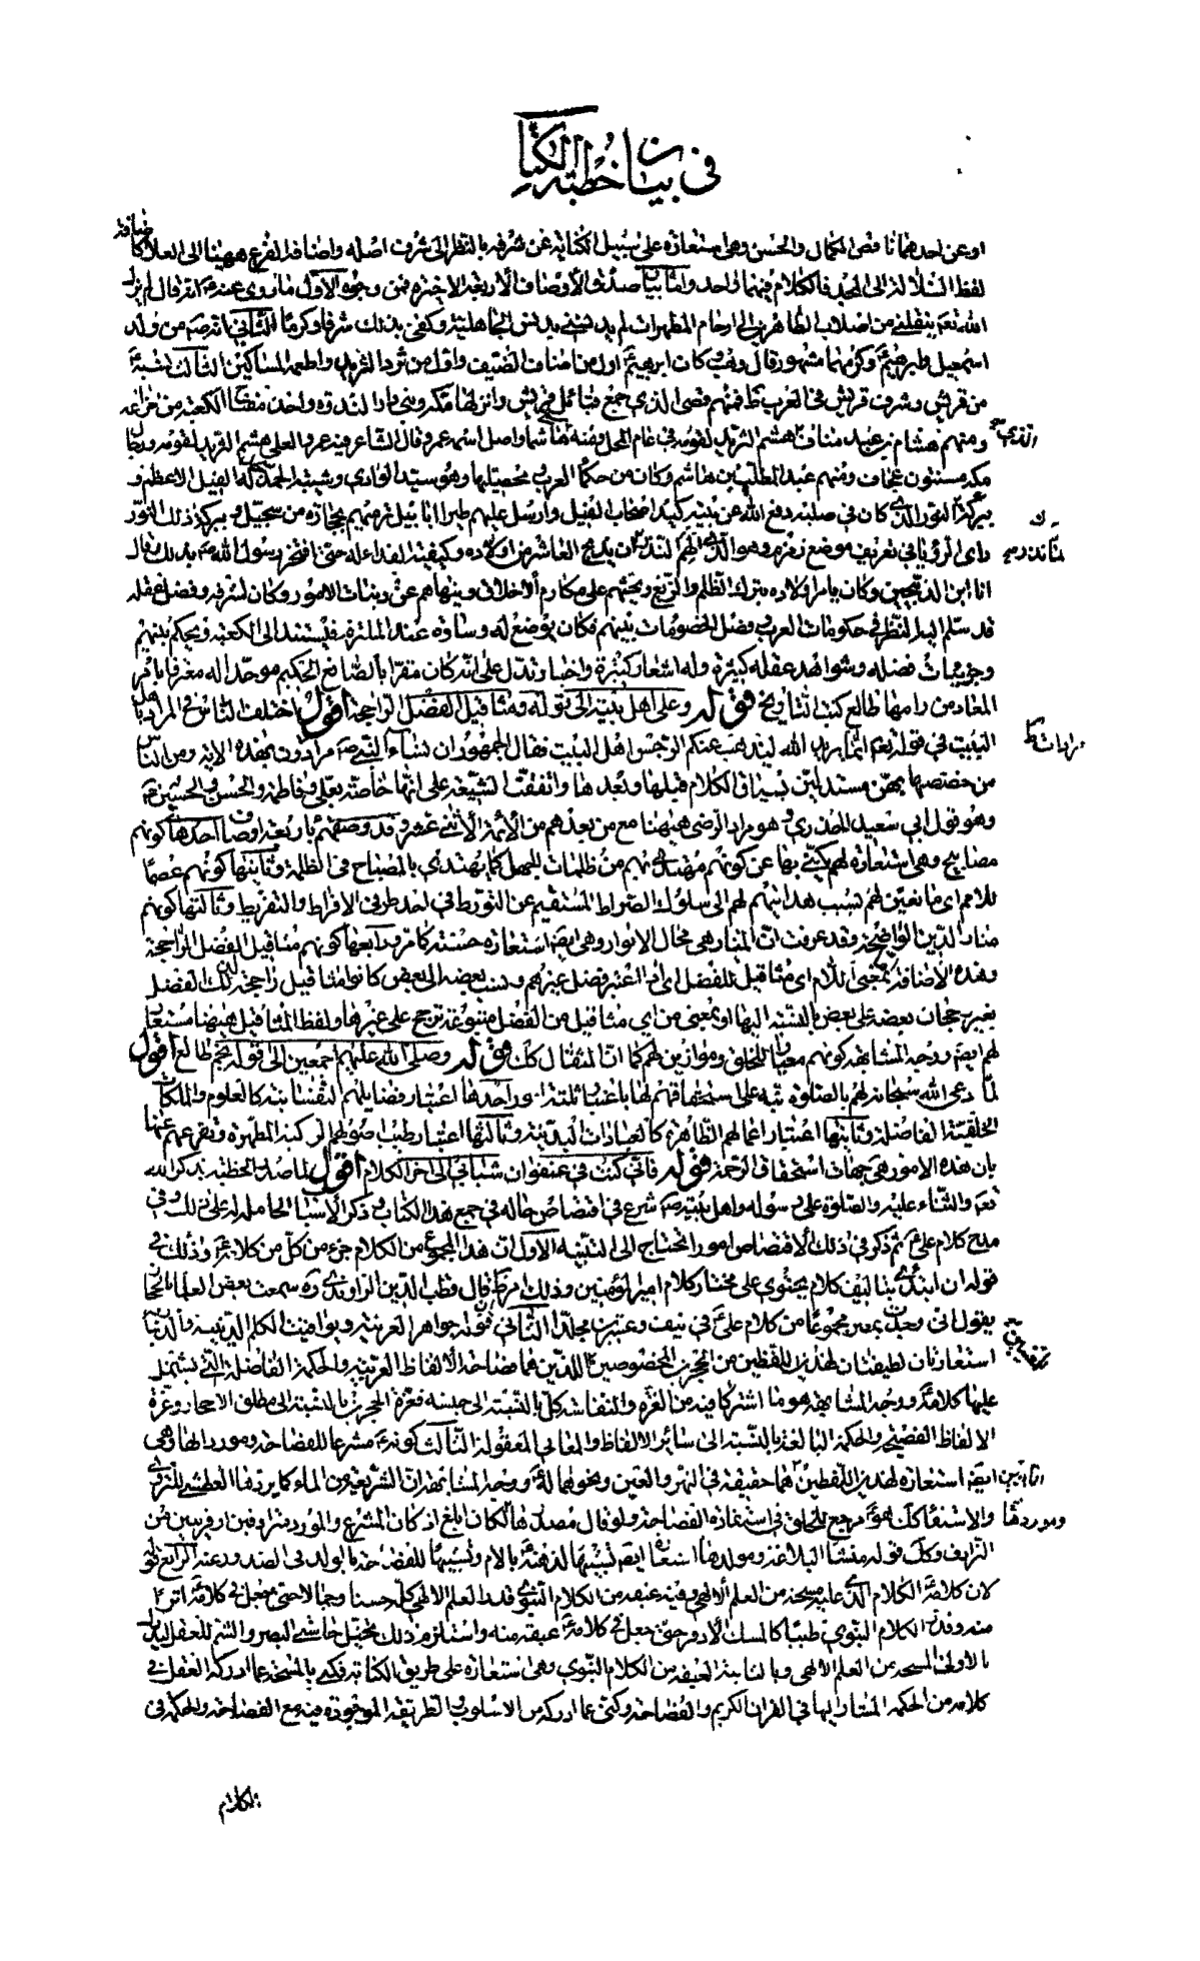 في بيان خطبة الكتاب
او عن احدهما ناقص الكمال والحسن وهي استعارة على سبيل الكناية عن شرفه بالنظر الى شرف اصله واضافة الفرع ههنا الى العلا كاضافة
لفظ السلالة الى المجد فالكلام فيهما واحد واما بيان صدق الاوصاف الاربعة الاخيرة فمن وجوه الاول ما روي عنه انه قال لم يزل
الله تعم ينقلني من اصلاب الطاهرين الى ارحام المطهرات لم يدنسني بدنس الجاهلية وكفى بذلك شرفا وكرما الثاني انه من ولد
اسمعيل وابرهيم وكرمهما مشهور قال وهب وكان ابرهيم اول من اضاف الضيف واول من ثرد الثريد واطعمه المساكين الثالث نسبة
من قريش وشرف قريش في العرب ظ فمنهم قصى الذي جمع قبائل قريش وانزلها مكة وبنى دار الندوة واخذ مفتاح الكعبة من خزاعة
ومنهم هشام بن عبد مناف هشم الثريد لقومه في عام المحل وسمه هاشما واصل اسمه عمرو قال الشاعر فيه عمرو العلى هشم الثريد لقومه ورجال
الذي
مكة مسنتون عجاف ومنهم عبد المطلب بن هاشم وكان من حكماء العرب وهو سيد الوادي وشيبة الحمد له الفيل الاعظم و
ببركة النور الذي كان في صلبه دفع الله عن بيته كيد اصحاب الفيل وارسل عليهم طيرا ابابيل ترميهم بحجارة من سجيل وببركة ذلك النور
راى الرؤيا في تعريف موضع زمزم وهو الذي لهم لنذر ان يذبح العاشر من اولاده وكيفية الفداء له حتى افتخر رسول الله ص بذلك فقال
انا ابن الذبيحين وكان يامر اولاده بترك الظلم والبغي ويحثهم على مكارم الاخلاق وينهاهم عن دنيات الامور وكان لشرفه وفضل عقله
قد سلم اليه النظر في حكومات العرب وفصل الخصومات بينهم فكان يوضع له وسادة عند الملتزم فيستند الى الكعبة ويحكم بينهم
وجزئيات فضله وشواهد عقله كثيرة وله اشعار كثيرة واخبار تدل على انه كان مقرا بالصانع الحكيم موحدا له معترفا بامر
المعاد من رامها طالع كتب التاريخ قوله وعلى اهل بيته الى قوله ومثاقيل الفضل الراجحة اقول اختلف الناس في المراد باهل
البيت في قوله تعم انما يريد الله ليذهب عنكم الرجس اهل البيت فقال الجمهور ان نساء النبي ص مرادون بهذه الاية ومن الناس
من خصصها بهن مستدلين بسياق الكلام قبلها وبعدها واتفقت الشيعة على انها خاصة بعلي وفاطمة والحسن والحسين ع
وهو قول ابي سعيد الخدري وهو مراد الرضى ههنا مع من بعدهم من الائمة الاثنى عشر وقد وصفهم باربعة اوصاف احدها كونهم
مصابيح وهي استعارة لهم كنى بها عن كونهم مهتدى بهم من ظلمات الجهل كما يهتدى بالمصباح في الظلمة وثانيها كونهم عصما
للامم اي مانعين لهم بسبب هدايتهم لهم الى سلوك الصراط المستقيم عن التورط في احد طرفي الافراط والتفريط وثالثها كونهم
منار الدين الواضحة وقد عرفت ان المنار هي محال الانوار وهي ايضا استعارة حسنة كما مر ورابعها كونهم مثاقيل الفضل الراجحة
وهذه الاضافة بمعنى اللام اي مثاقيل للفضل اي اذا اعتبر فضل غيرهم ونسب بعضه الى بعض كانوا مثاقيل راجحة لذلك الفضل
يعتبر رجحان بعضه على بعض بالنسبة اليها او بمعنى من اي مثاقيل من الفضل متنوعة ترجح على غيرها ولفظ المثاقيل ههنا مستعار
لهم ايضا ووجه المشابهة كونهم معيارا للخلق وموازين لهم كما ان المثقال كك قوله وصلى الله عليهم اجمعين الى قوله نجم طالع اقول
لما دعى الله سبحانه لهم بالصلوة نبه على استحقاقهم لها باعتبارات ثلثة احدها اعتبار فضايلهم النفسانية كالعلوم والملكات
الخلقية الفاضلة وثانيها اعتبار اعمالهم الظاهرة كالعبادات البدنية وثالثها اعتبار طيب اصولهم الزكية المطهرة وتفرعهم عنها
بان هذه الامور هي جهات استحقاق الرحمة قوله فاني كنت في عنفوان شبابي الى اخر الكلام اقول لما صدر الخطبة بذكر الله
تعم والثناء عليه والصلوة على رسوله واهل بيته ص شرع في اقتصاص حاله في جمع هذا الكتاب وذكر الاسباب الحاملة له على ذلك وفي
مدح كلام علي ع ثم ذكر في ذلك الاقتصاص امورا يحتاج الى التنبيه الاول ان هذا المجموع من الكلام جزء من كل من كلامه ع وذلك في
قوله ان ابتدئ بتاليف كلام يحتوي على مختار كلام امير المؤمنين وذلك قال قطب الدين الراوندي ره سمعت بعض العلماء بالحجاز
يقول اني وجدت بمصر مجموعا من كلام علي ع في نيف وعشرين مجلدا الثاني قوله جواهر العربية ويواقيت الكلم الدينية والدنياوية
استعارتان لطيفتان لهذين اللفظين من الحجرين المخصوصين للذين هما فصاحة الالفاظ العربية والحكمة الفاضلة التي يشتمل
عليها كلامه ع ووجه المشابهة هو ما اشتركا فيه من العزة والنفاسة كل بالنسبة الى جنسه فعزة الحجرين بالنسبة الى مطلق الاحجار وعزة
الالفاظ الفصيحة والحكمة البالغة بالنسبة الى سائر الالفاظ والمعاني المعقولة الثالث كونه ع مشرعا للفصاحة وموردا لها وهي
ايضا استعارة لهذين اللفظين هما حقيقة في النهر والعين ونحوهما له ع ووجه المشابهة ان الشريعة من الماء كما يردها العطشى للتروي
وموردها والاستقاء كك هو ع مرجع للخلق في استفادة الفصاحة ولو قال مصدرها لكان ابلغ اذ كان المشرع والمورد مترادفين او قريبين من
الترادف وكك قوله منشأ البلاغة ومولدها استعارة ايضا تشبيها لذهنه ع بالام وتشبيها للفصاحة بالولد في الصدور عنه الرابع قوله
لان كلامه ع الكلام الذي عليه مسحة من العلم الالهي وفيه عبقة من الكلام النبوي
منه وفي الكلام النبوي طيبا كالمسك الاذفر حتى جعل في كلامه ع عبقة منه واستلزم ذلك تخيل حاستي البصر والشم للعقل
بالاولى المسحة من العلم الالهي وبالثانية العبقة من الكلام النبوي وهي استعارة على طريق الكناية فكنى بالمسحة عما ادركه العقل في
كلامه من الحكمة المشار اليها في القران الكريم والفصاحة وكنى عما ادركه من الاسلوب والطريقة الموجودة فيه مع الفصاحة والحكمة في
الكلام